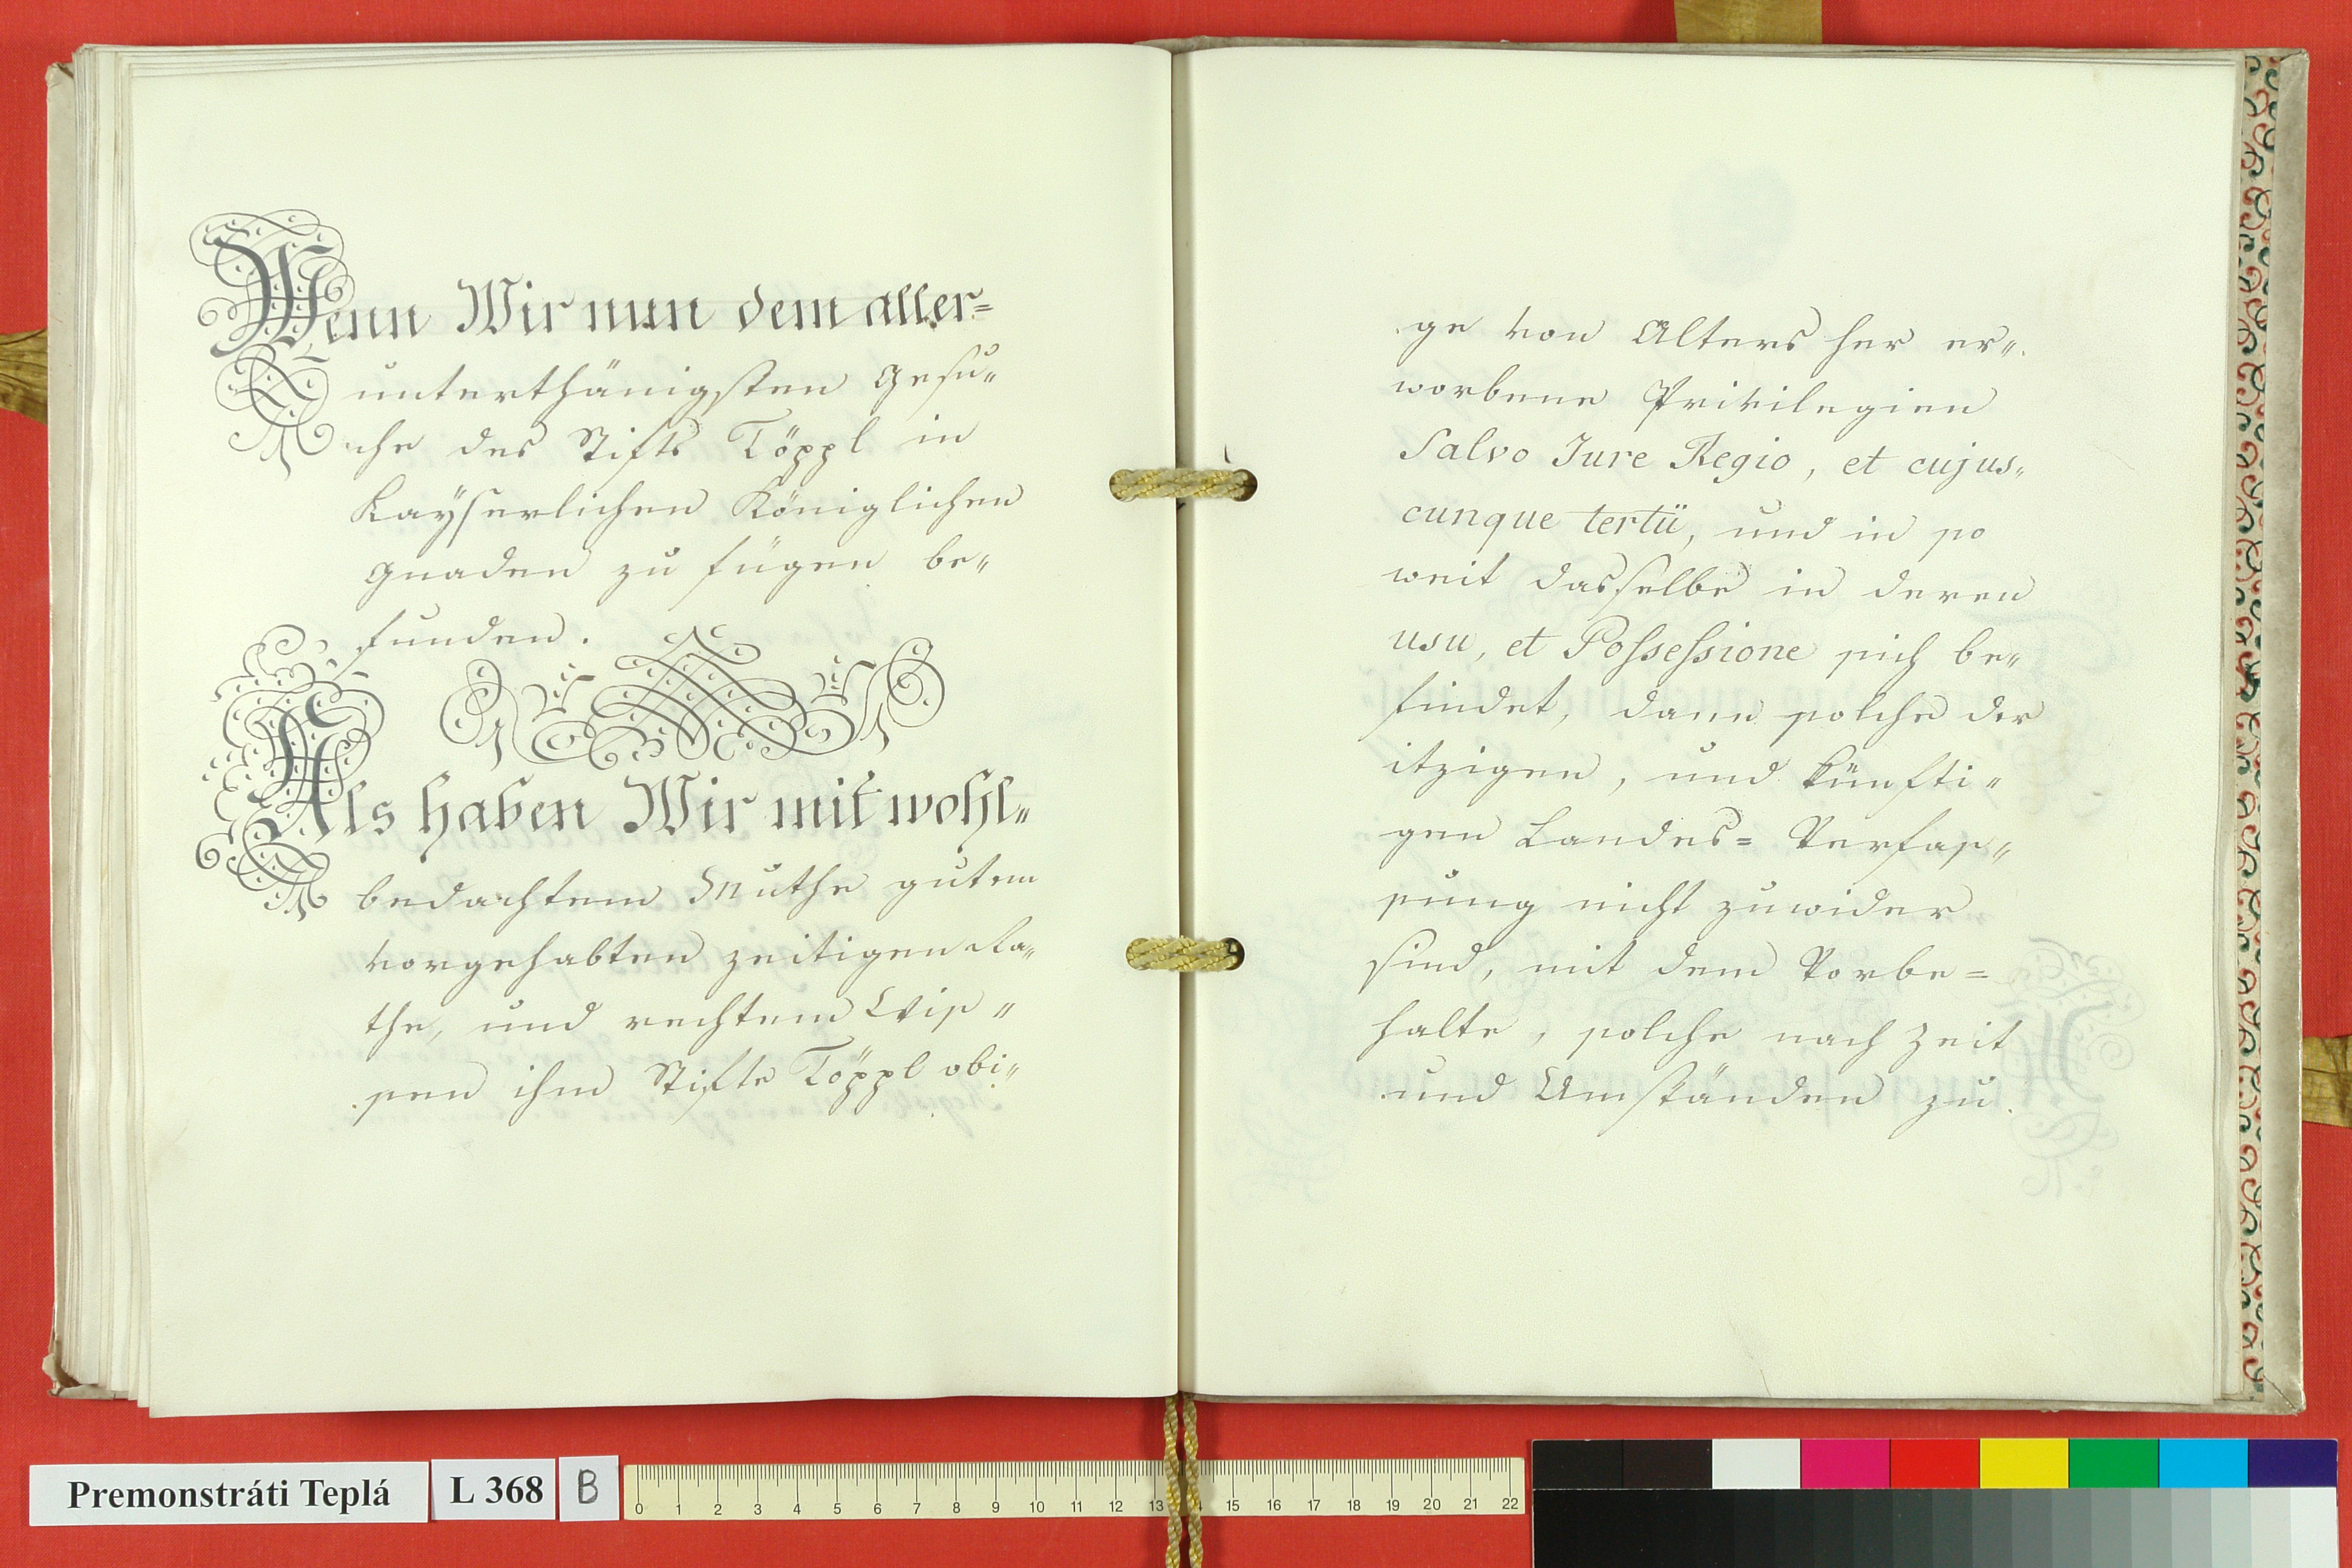 Wenn Wir nun dem aller=
unterthänigsten Gesu„
che des Stifts Töppl in
Kayserlichen Königlichen
Gnaden zu fügen be„
funden.
Als haben Wir mit wohl„
bedachtem Muthe gutem
vorgehabten zeitigen Ra„
the, und rechtem Wis„
sen ihm Stifte Töppl obi„
ge von Alters her er„
worbene Privilegien
Salvo Jure Regio, et cujus„
cunque tertii, und in so
weit dasselbe in deren
usu, et Possessione sich be„
findet, dann solche der
itzigen, und künfti„
gen Landes= Verfas„
sung nicht zuwider
sind, mit dem Vorbe=
halte, solche nach Zeit
und Umständen zu
Premonstráti Teplá L 368 B
0 1 2 3 4 5 6 7 8 9 10 11 12 13 15 16 17 18 19 20 21 22